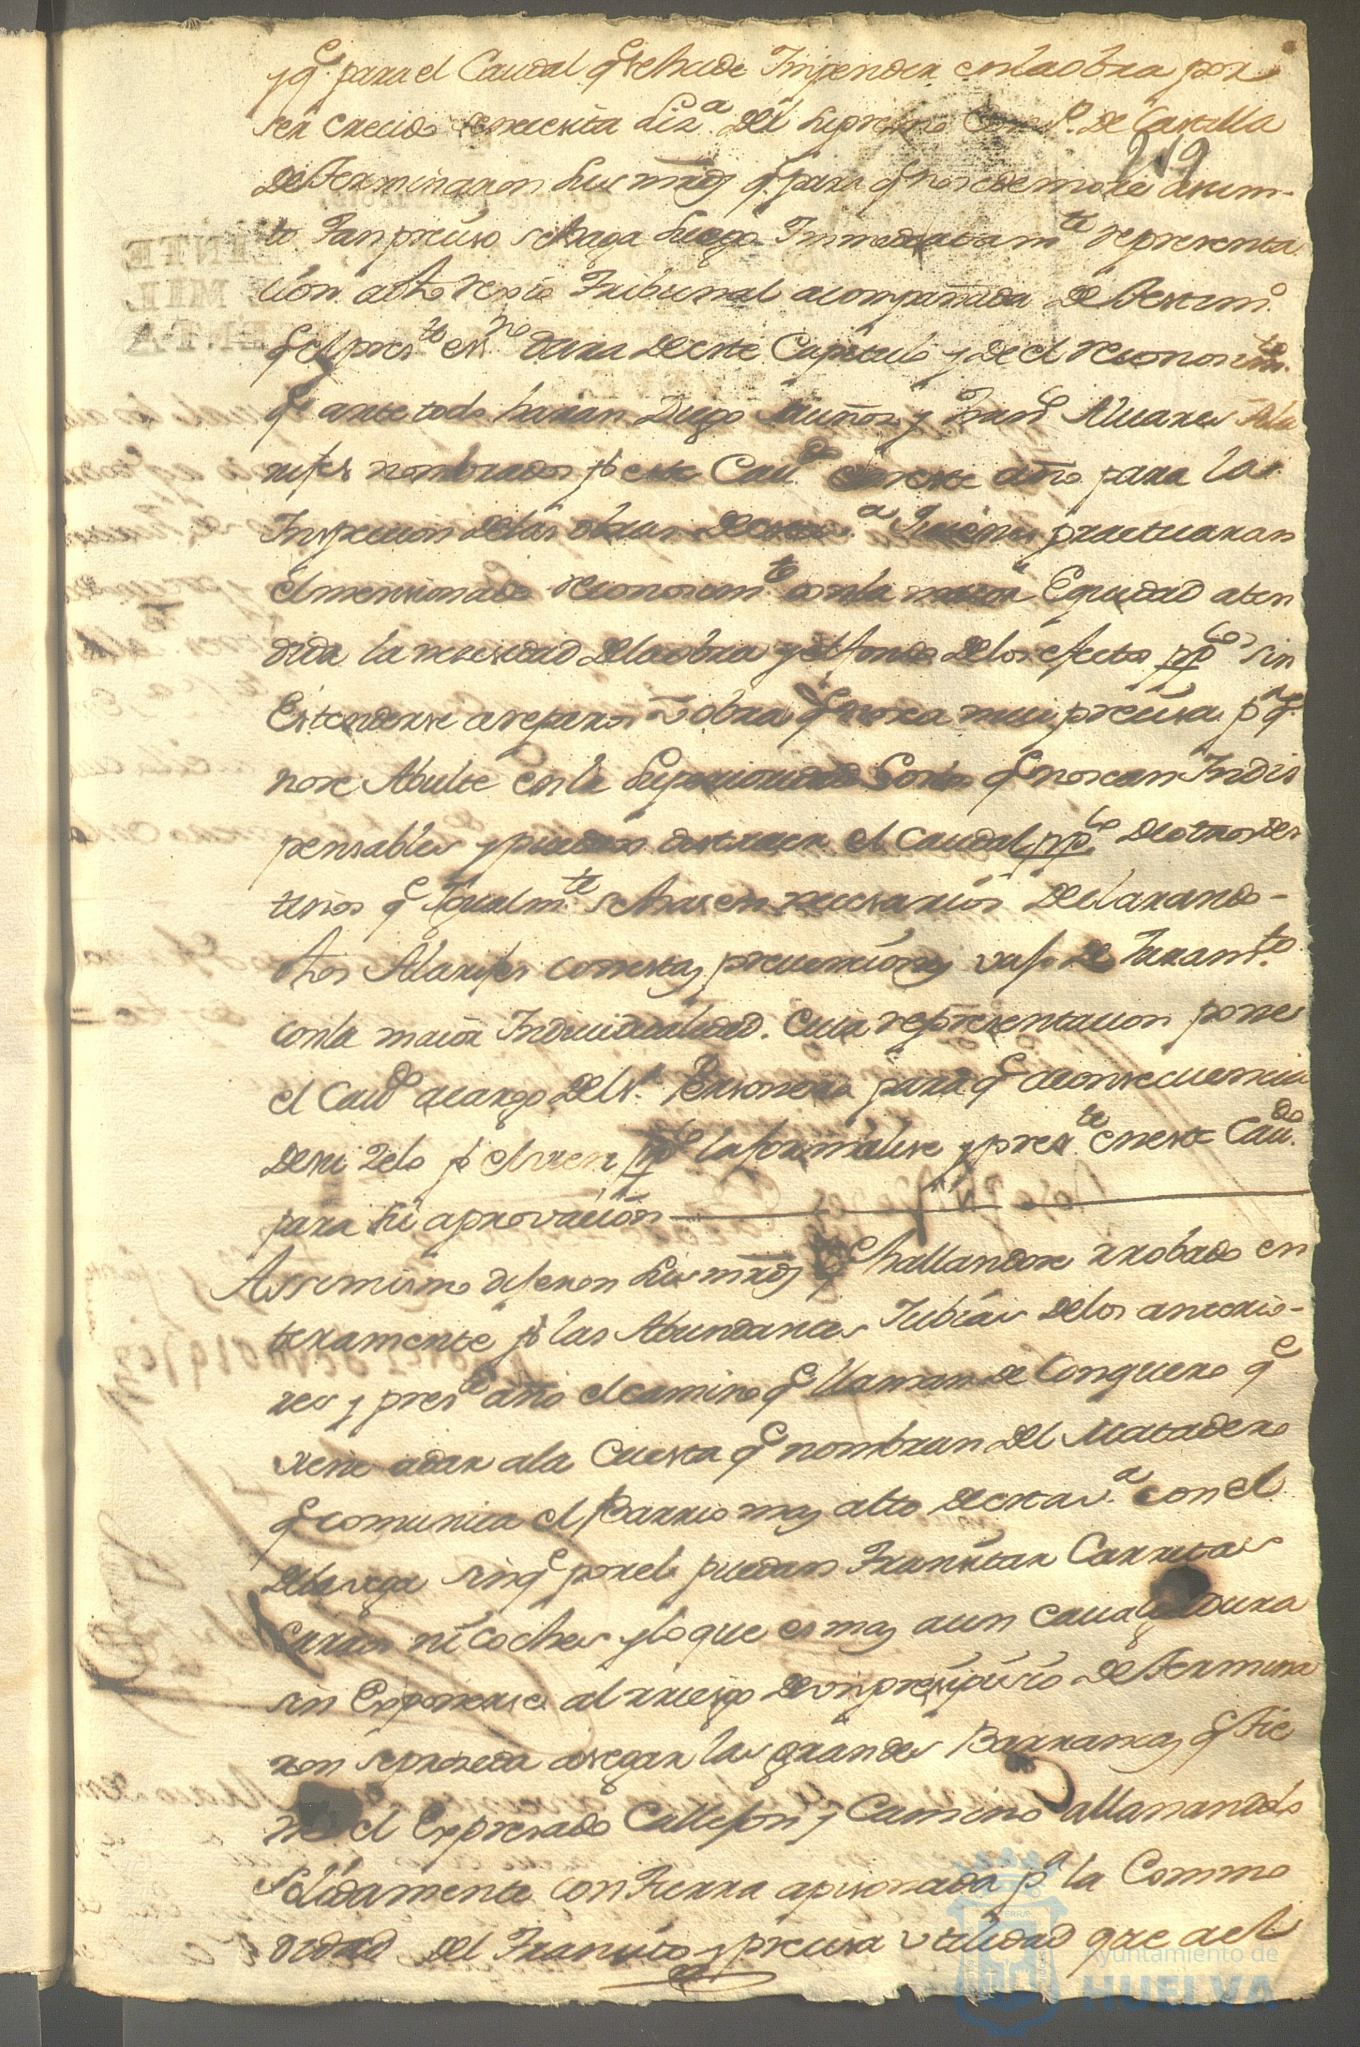 y q.e para el Caudal q.e se ha de Impender en la obra por
ser crecido se necesita Liz.a del Supremo Cons.o de Castilla
219
determinaron sus mrds q.e para q.e no se demore asump-
to tan preciso se haga luego Inmediatam.te representa
cion a dho regio Tribunal acompañada de Testim.o
q.e el pres.te es.no dara de este Capitulo y de el reconosim.to
q.e ante todo haran Diego Muños y Fran.co Alvares Ala
rifes nombrados p.r este Cav.do en este año para la
Inspecion de las obras de esta v.a quienes practicaran
el mensionado reconosim.to con la maior Equidad aten
dida la nesesidad de la obra y el fondo de los efectos pp.cos sin
Estenderse a reparos u obra q.e no sea mui precisa p.a q.e
no se Abulte en la Superioridad Costos q.e no sean Indis
pensables y puedan distraer el Caudal pp.co de otros des
tinos q.e Igualm.te se hasen nesesarios declarando-
dhos Alarifes con estas prevenciones vajo de Juram.to
con la maior Individualidad. Cuia representacion pone
el Cav.do a cargo del s.r Personero para q.e a consecuencia
de su Zelo p.r el vien pp.co la formalise y pres.te en este Cav.do
para su aprovacion
Assimismo dijeron sus mrds q.e hallandose rrobado en
teramente p.r las Abundantes Lubias de los anterio-
res y pres.te año el camino q.e llaman de Conquero q.e
viene a dar a la Cuesta q.e nombran del Matadero
q.e comunica el Barrio mas alto de esta v.a con el
de la vega sin q.e por el puedan Transitar Carretas
Carros ni coches y lo que es mas aun Cavalgadura
sin Exponerse al rriesgo de un presipisio determina
ron se proseda a segar las grandes Barrancas q.e tie
ne el Expresado Callejon y Camino allanandolo
solidamente con tierra apisonada p.a la Commo
didad del Transito y precisa utilidad que a el
Ayuntamiento de
HUELVA